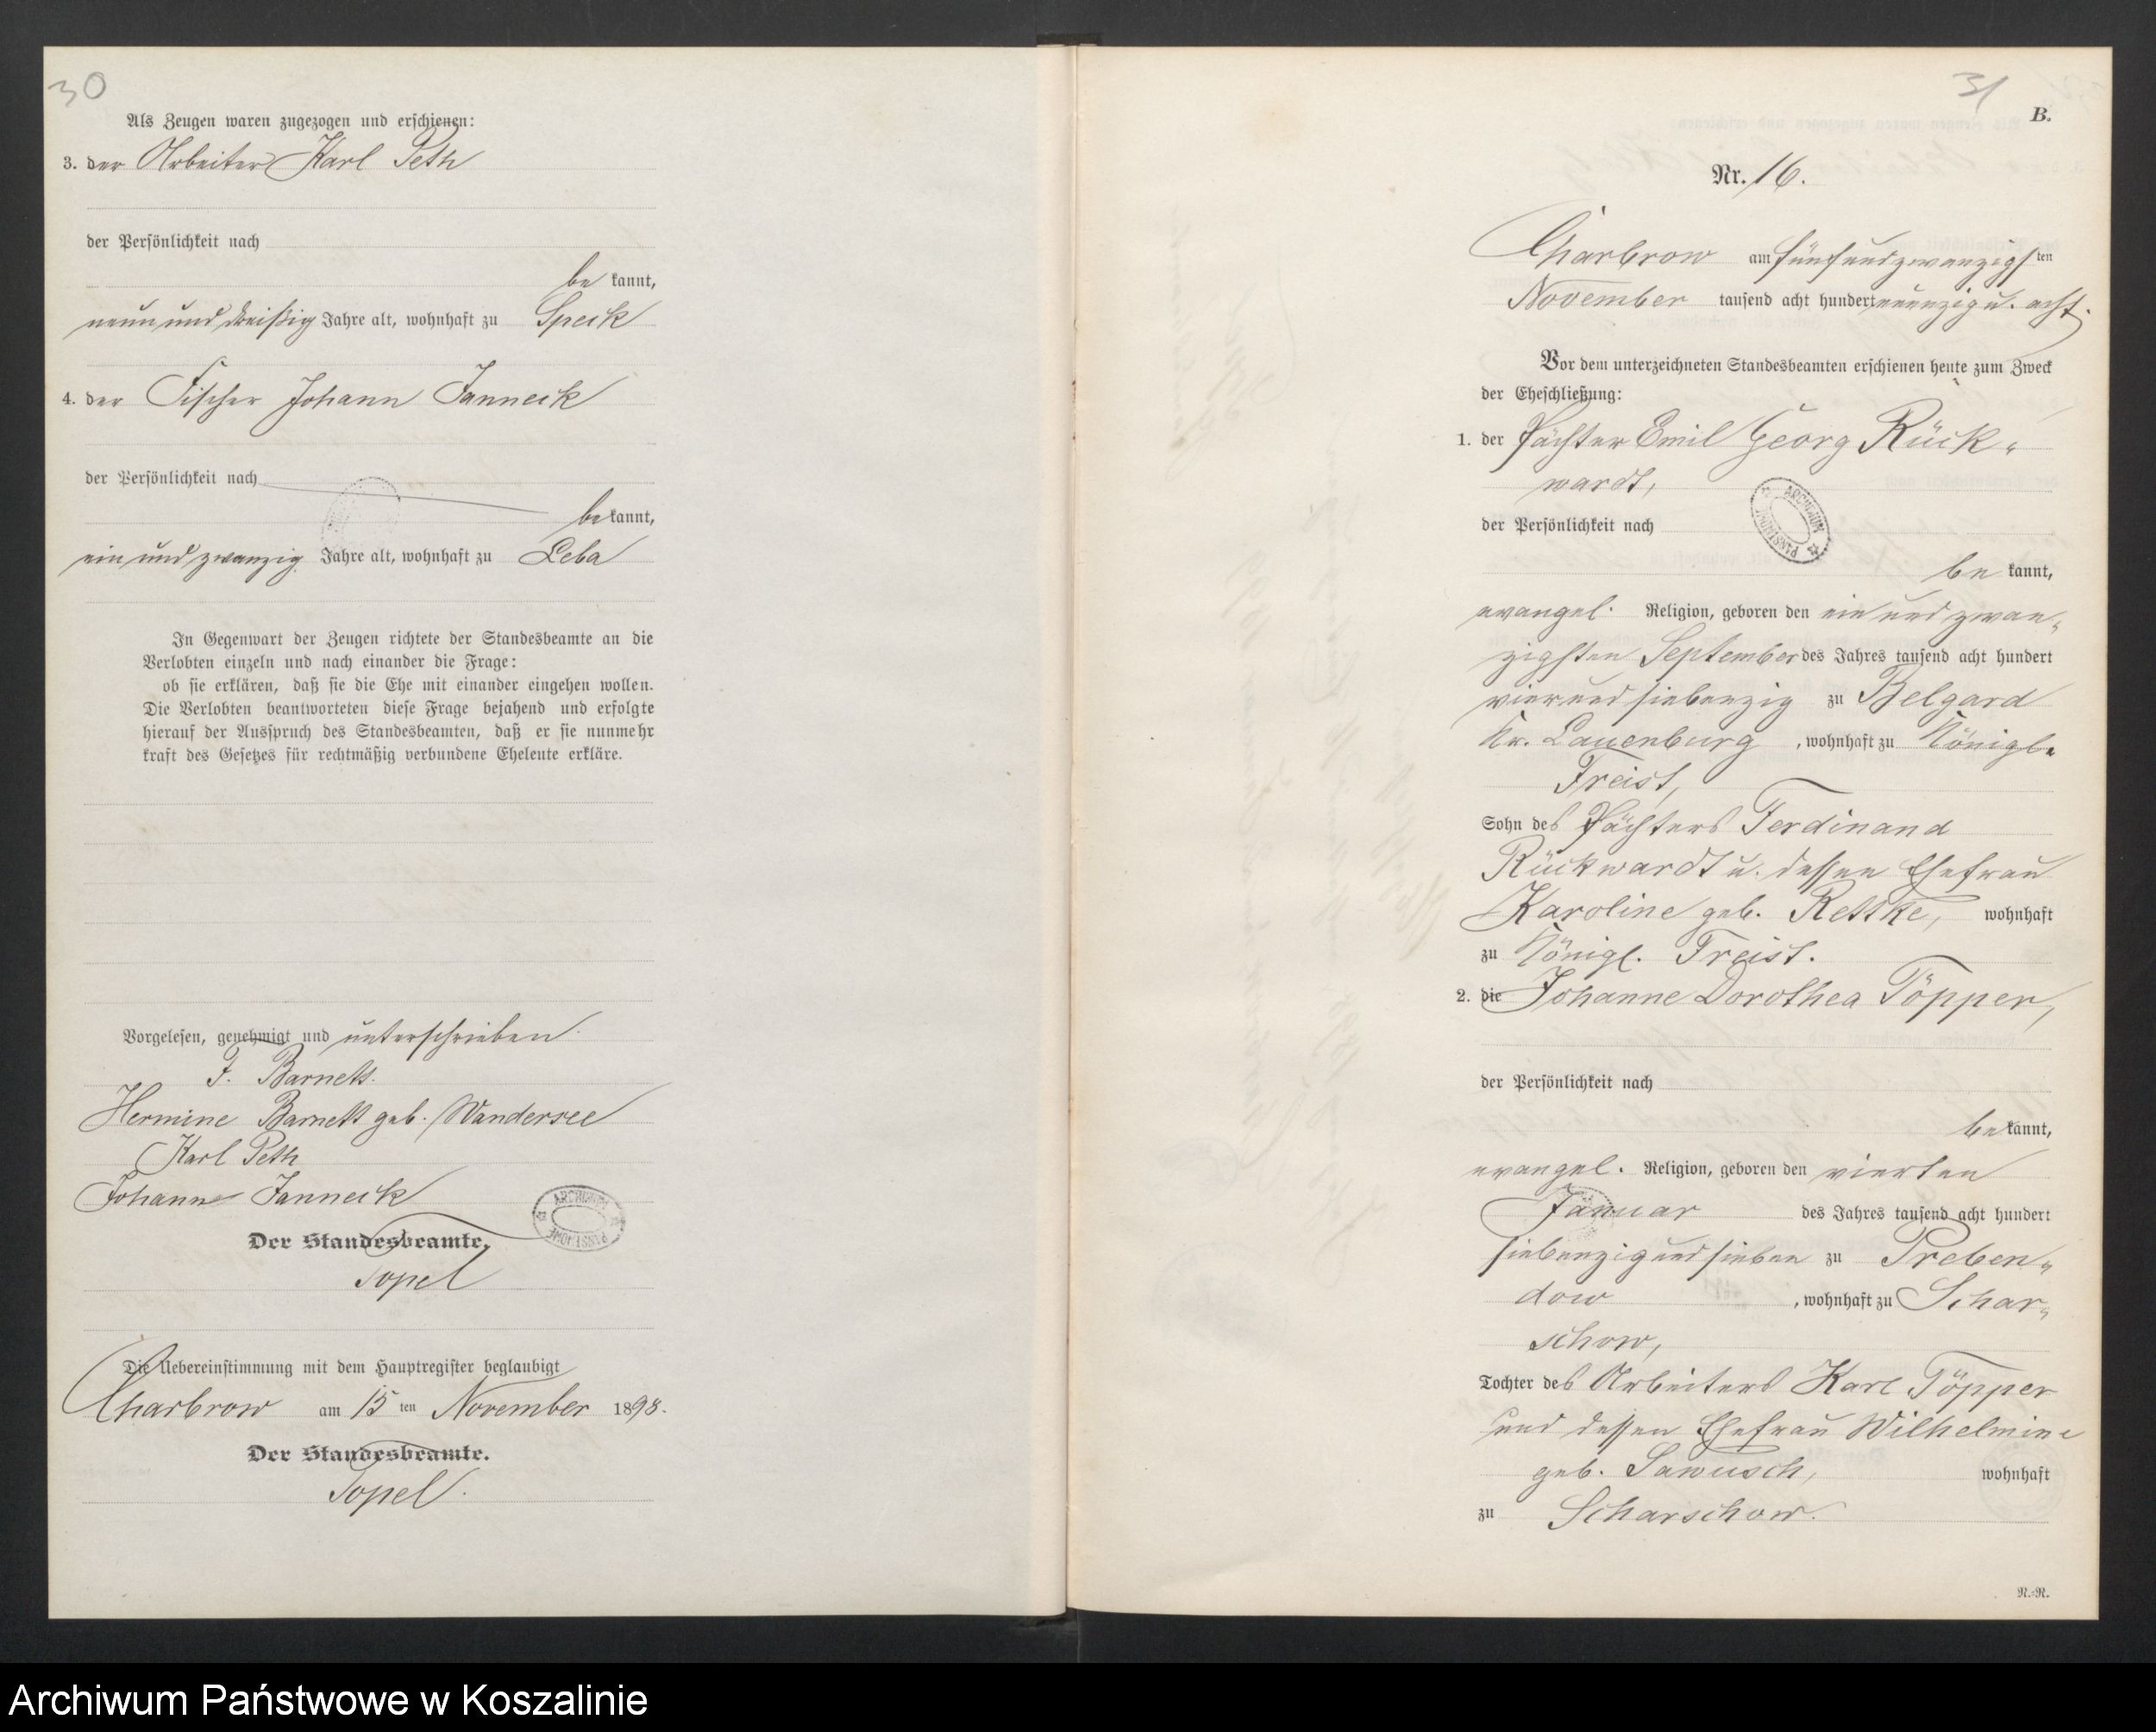 30
Als Zeugen waren zugezogen und erschienen:
3. der Arbeiter Karl Peth
der Persönlichkeit nach
be kannt,
neun und dreißig Jahre alt, wohnhaft zu Speck
4. der Fischer Johann Janneck
der Persönlichkeit nach
be kannt,
ein und zwanzig Jahre alt, wohnhaft zu Leba
In Gegenwart der Zeugen richtete der Standesbeamte an die
Verlobten einzeln und nach einander die Frage:
ob sie erklären, daß sie die Ehe mit einander eingehen wollen.
Die Verlobten beantworteten diese Frage bejahend und erfolgte
hierauf der Ausspruch des Standesbeamten, daß er sie nunmehr
kraft des Gesetzes für rechtmäßig verbundene Eheleute erkläre.
Vorgelesen, genehmigt und unterschrieben.
F. Barnetz.
Hermine Barnetz geb. Wandersee
Karl Peth
Johann Janneck
Der Standesbeamte.
Topel
Die Uebereinstimmung mit dem Hauptregister beglaubigt
Charbrow am 15 ten November 1898.
Der Standesbeamte.
Topel.
31
B.
Nr. 16.
Charbrow am fünfundzwanzigsten
November tausend acht hundert neunzig u. acht.
Vor dem unterzeichneten Standesbeamten erschienen heute zum Zweck
der Eheschließung:
1. der Pächter Emil Georg Rück-
wardt,
der Persönlichkeit nach
be kannt,
evangel. Religion, geboren den ein und zwan-
zigsten September des Jahres tausend acht hundert
vierundsiebenzig zu Belgard
Kr. Lauenburg, wohnhaft zu Königl.
Freist,
Sohn des Pächters Ferdinand
Rückwardt u. dessen Ehefrau
Karoline geb. Rettke, wohnhaft
zu Königl. Freist.
2. die Johanne Dorothea Töpper,
der Persönlichkeit nach
be kannt,
evangel. Religion, geboren den vierten
Januar des Jahres tausend acht hundert
siebenzigundsieben zu Preben-
dow, wohnhaft zu Schar-
schow,
Tochter des Arbeiters Karl Töpper
und dessen Ehefrau Wilhelmine
geb. Sawusch, wohnhaft
zu Scharschow.
R.-R.
Archiwum Państwowe w Koszalinie